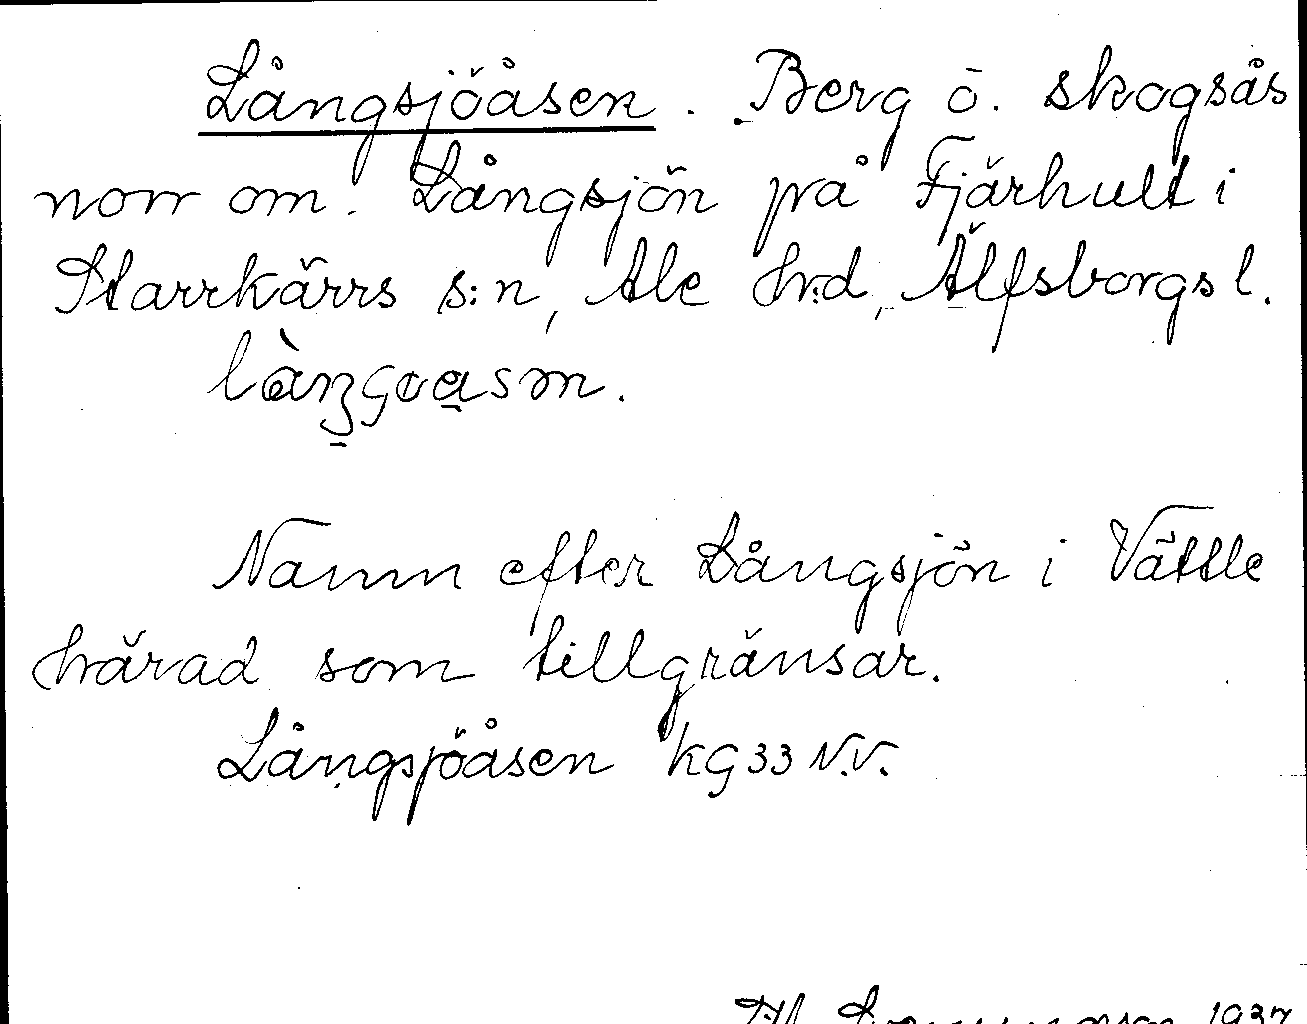 Långsjöåsen. Berg o. skogsås
norr om. Långsjön på Fjärhult i
Starrkärrs s:n, Ale hrd, Älfsborgs l.
Namn efter Långsjön i Vättle
härad som tillgränsar.
Långsjöåsen KG 33 N.V.
1937